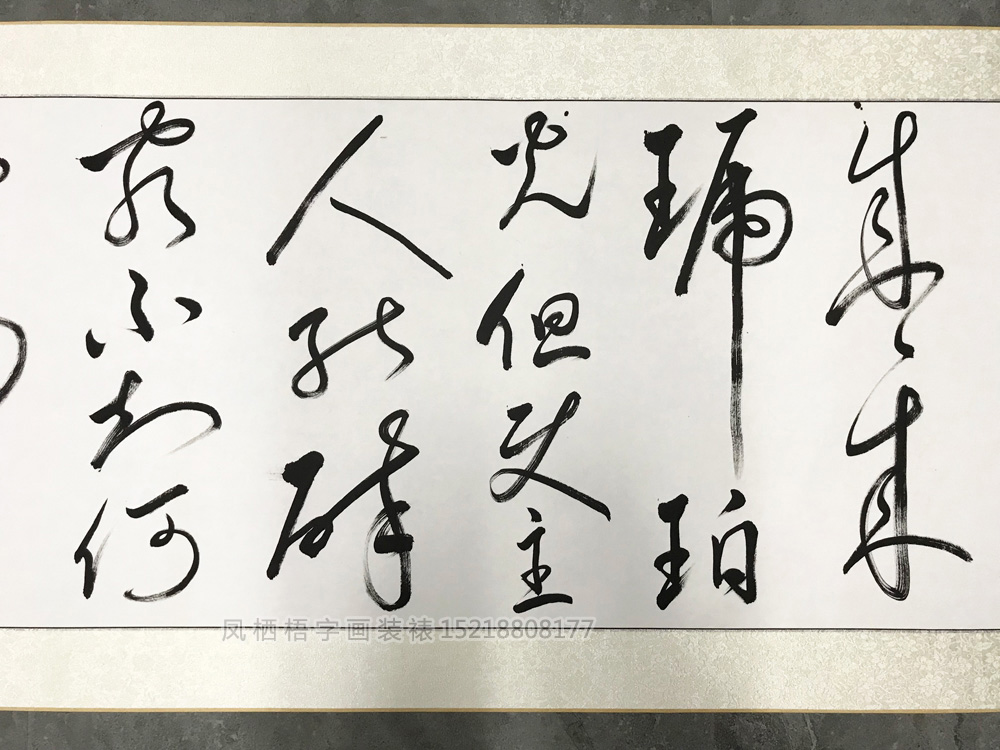 盛来
琥珀
光但使主
人能醉
客不知何
凤栖梧字画装裱15218808177